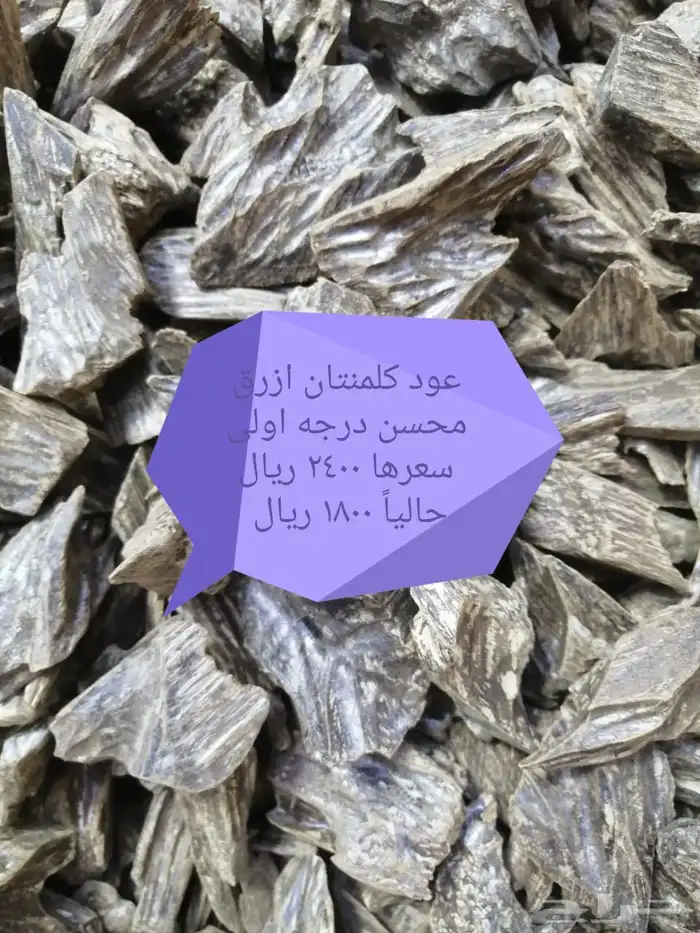 عود كلمنتان ازرق
محسن درجه اولى
سعرها ٢٤٠٠ ريال
حالياً ١٨٠٠ ريال
حراج